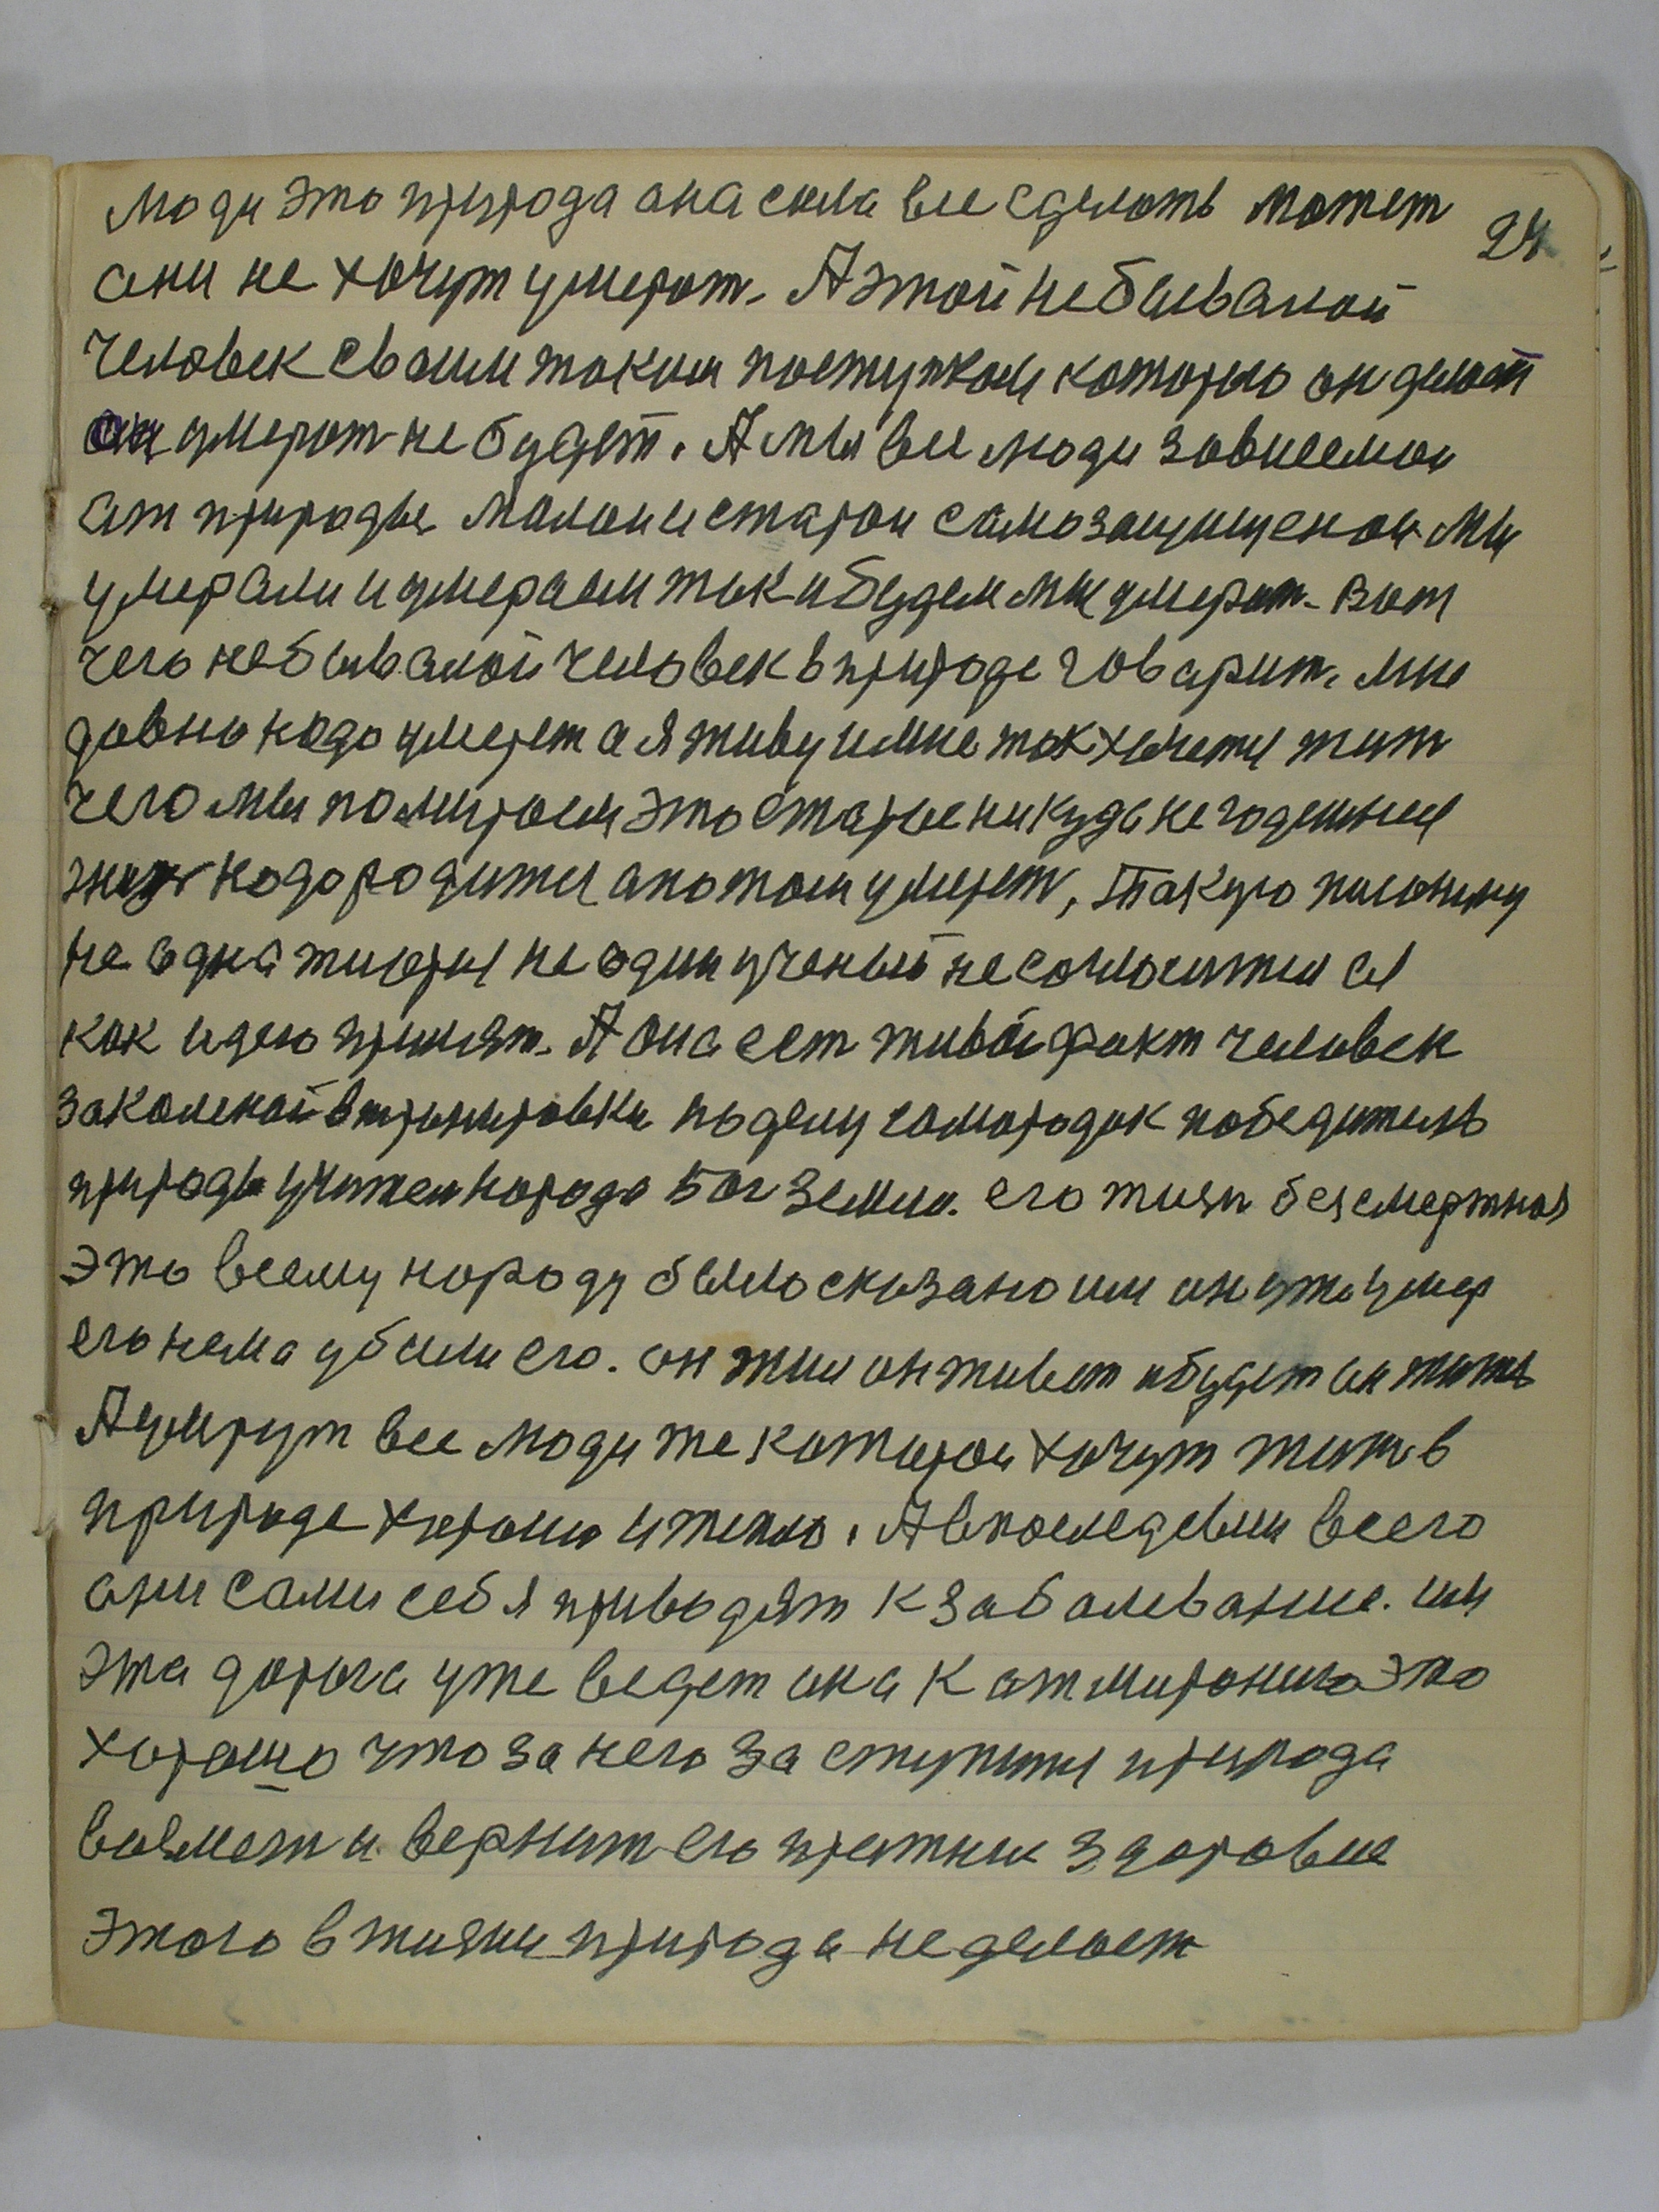 люди это природа она сила все сделоть может
24
они не хочут умерат. А этой небывалой
человек сваим таким поступком которыо он делает
он умерат не будет. А мы все люди зависемои
от природы малои и старои самозащищенои мы
умерали и умераем так и будем мы умерат. вот
чего небывалой человек в природе говарит. мне
давно надо умерет а я живу и мне так хочетця жит
чего мы помираем это старые никуда негодешния
надо родитця а потом умерет, такую пилюлю
не одна тиория не один ученый не согласитця ея
как идею принят. А она ест живой факт человек
закаленой в тринировки по делу самародок победитель
природы учител народа Бог земли. его жизн безсмертная
это всему народу было сказано им он уже умер
его нема убили его. он жил он живет и будет он жить
А умрут все люди те каторои хочут жить в
природе хорошо и тепло. А впоследсвии всего
они сами себя приводят к заболевание. им
эта дорога уже ведет она к отмиранию это
хорошо что за него заступитця природа
возмет и вернит его прежние здоровие
этого в жизни природа неделает